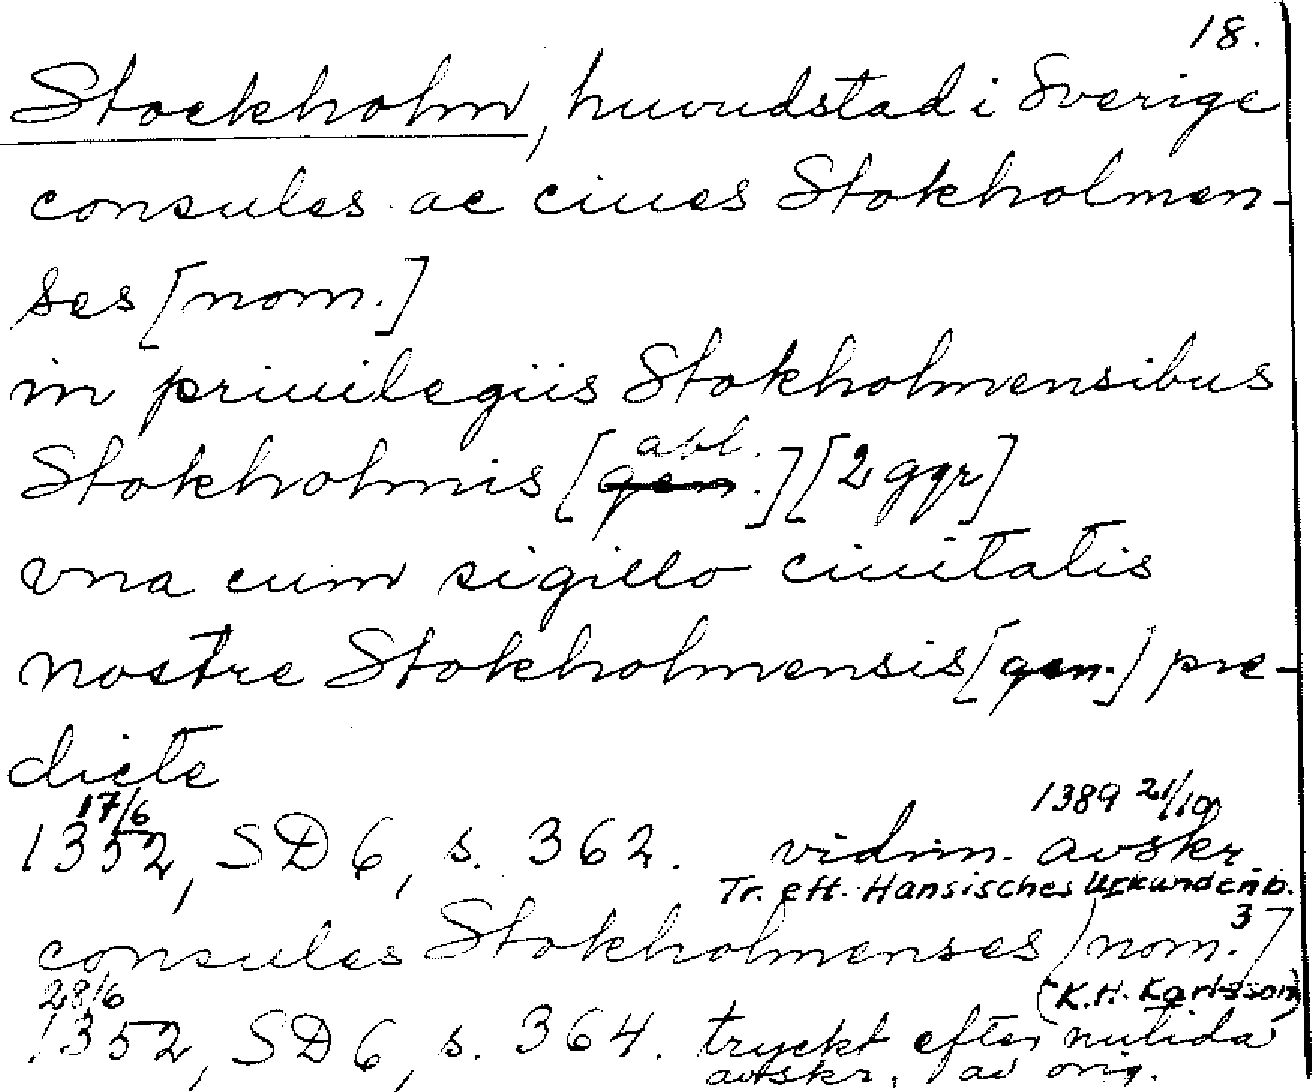 18.
Stockholm, huvudstad i Sverige
consules ac ciues Stokholmen-
ses [nom.]
in priuilegiis Stokholmensibus
abl.
Stokholmis [gen.] [2 ggr]
vna cum sigillo ciuitatis
nostre Stokholmensis [gen.] pre-
dicte
17/6 1389 21/10
1352, SD 6, s. 362. vidim. avskr.
Tr. eft. Hansisches Urkundenb.
3
consules Stokholmenses [nom.]
28/6 (K.H. Karlsson)
1352, SD 6, s. 364. tryckt efter nutida
avskr. av orig.